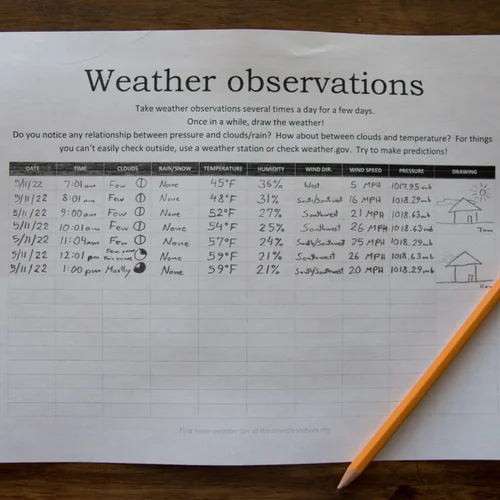 Weather observations
Take weather observations several times a day for a few days.
Once in a while, draw the weather!
Do you notice any relationship between pressure and clouds/rain? How about between clouds and temperature? For things
you can't easily check outside, use a weather station or check weather.gov. Try to make predictions!
DATE TIME CLOUDS RAIN/SNOW TEMPERATURE HUMIDITY WIND DIR. WIND SPEED PRESSURE DRAWING
5/11/22 7:01am Few None 45°F 36% West 5 MPH 1017.95mb
5/11/22 8:01am Few None 48°F 31% South/Southwest 16 MPH 1018.29mb
5/11/22 9:00am Few None 52°F 27% Southwest 21 MPH 1018.63mb
7am
5/11/22 10:01am Few None 54°F 25% Southwest 26 MPH 1018.63mb
5/11/22 11:04am Few None 57°F 24% South/Southwest 25 MPH 1018.29mb
5/11/22 12:01pm None 59°F 21% Southwest 26 MPH 1018.63mb
5/11/22 1:00pm Mostly None 59°F 21% South/Southwest 20 MPH 1018.29mb
Find more weather fun at